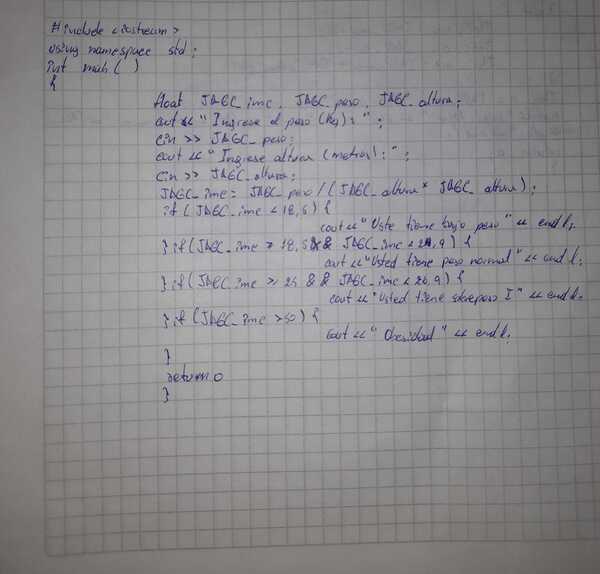 #include <iostream>
using namespace std;
int main ( )
{
float JAGC_imc, JAGC_peso, JAGC_altura;
cout << "Ingrese el peso (kg): ";
cin >> JAGC_peso;
cout << "Ingrese altura (metros): ";
cin >> JAGC_altura;
JAGC_imc = JAGC_peso / (JAGC_altura * JAGC_altura);
if (JAGC_imc < 18,5) {
cout << "Uste tiene bajo peso" << endl;
} if (JAGC_imc > 18,5 && JAGC_imc < 24,9) {
cout << "Usted tiene peso normal" << endl;
} if (JAGC_imc > 25 && JAGC_imc < 29,9) {
cout << "Usted tiene sobrepeso I" << endl;
} if (JAGC_imc > 30) {
cout << "Obesidad" << endl;
}
return 0
}